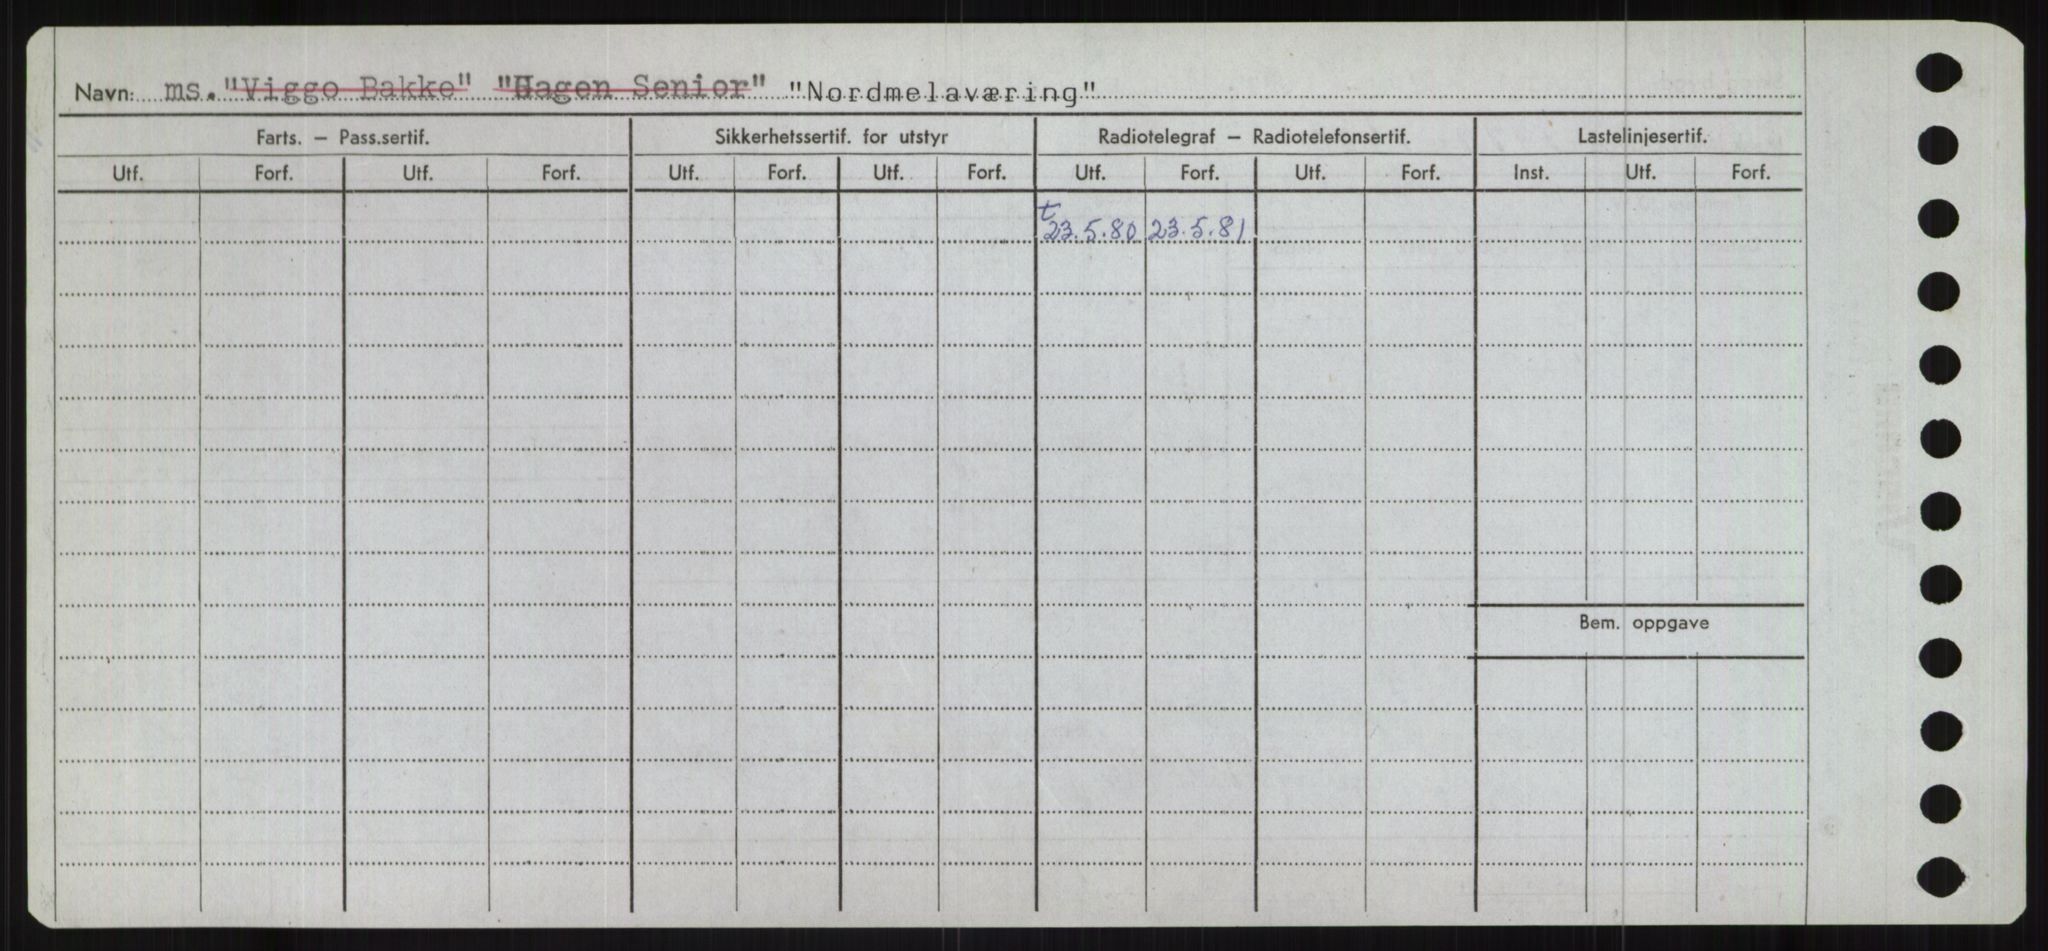 Navn: ms. "Viggo Bakke" "Hagen Senior" "Nordmelaværing"
Farts. — Pass.sertif. Sikkerhetssertif. for utstyr Radiotelegraf — Radiotelefonsertif. Lastelinjesertif.
Utf. Forf. Utf. Forf. Utf. Forf. Utf. Forf. Utf. Forf. Utf. Forf. Inst. Utf. Forf.
t
23.5.80 23.5.81
Bem. oppgave